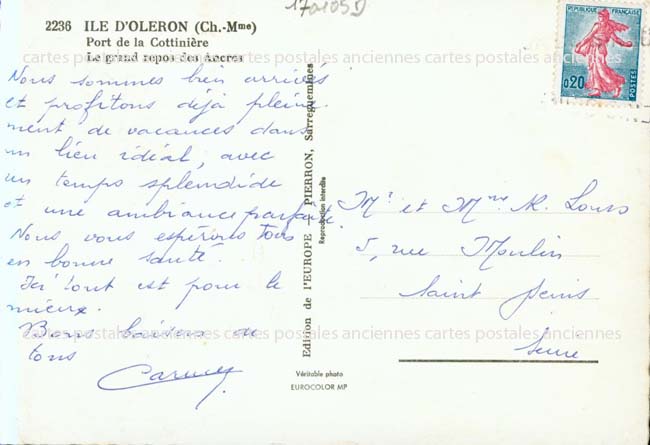 170105D
2236 ILE D'OLERON (Ch.-Mme)
Port de la Cottinière
Le grand repos des Ancres
Nous sommes bien arrivés
et profitons déjà pleine-
ment de vacances dans
un lieu idéal, avec
un temps splendide
et une ambiance parfaite.
Nous vous espérons tous
en bonne santé.
Ici tout est pour le
mieux.
Bons baisers de
tous
Edition de l'EUROPE - PIERRON, Sarreguemines
Reproduction interdite
Véritable photo
EUROCOLOR MP
REPUBLIQUE FRANÇAISE
0,20
POSTES
Mr et Mme
5, rue Moulin
Saint Denis
Seine
cartes postales anciennes cartes postales anciennes cartes postales anciennes
cartes postales anciennes cartes postales anciennes cartes postales anciennes
cartes postales anciennes cartes postales anciennes cartes postales anciennes